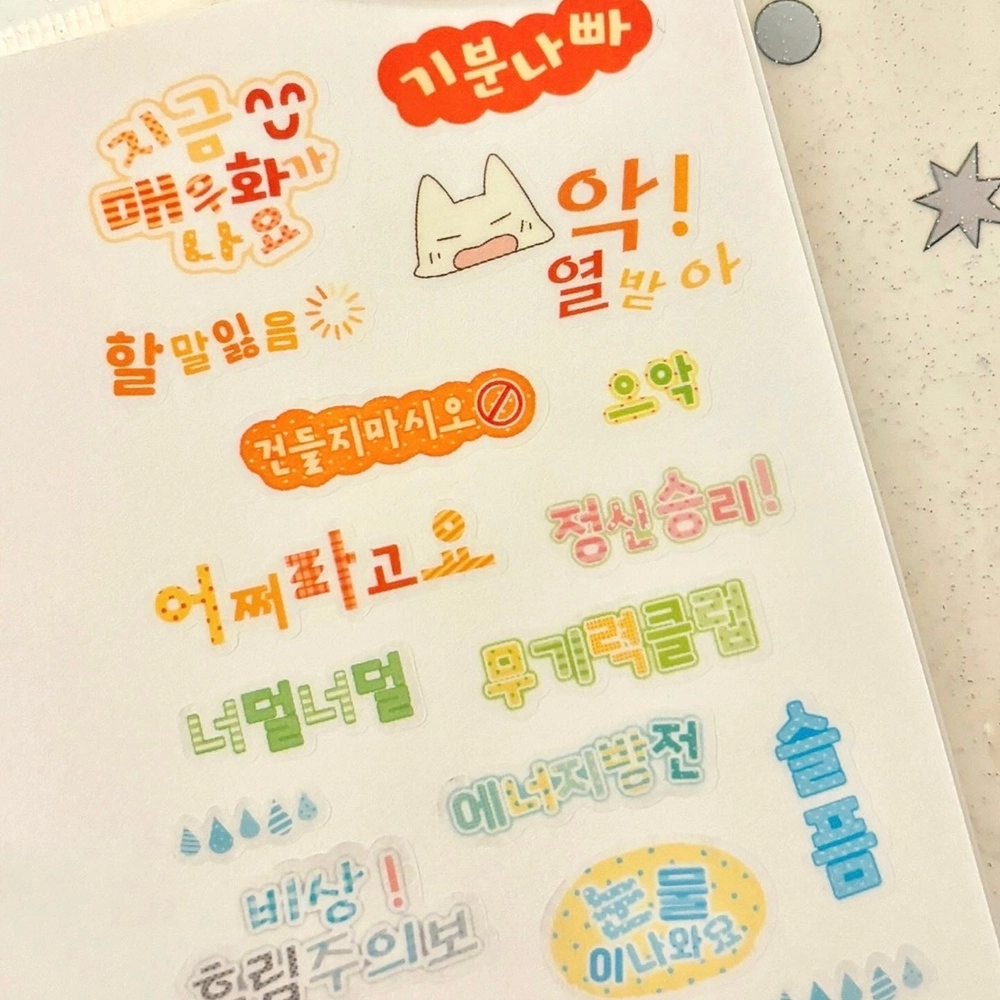 기분나빠
지금
매우화가
나요
악!
열받아
할말잃음
건들지마시오
으악
정신승리!
어쩌라고요
무기력클럽
너덜너덜
에너지방전
슬픔
비상!
흐림주의보
눈물
이나와요